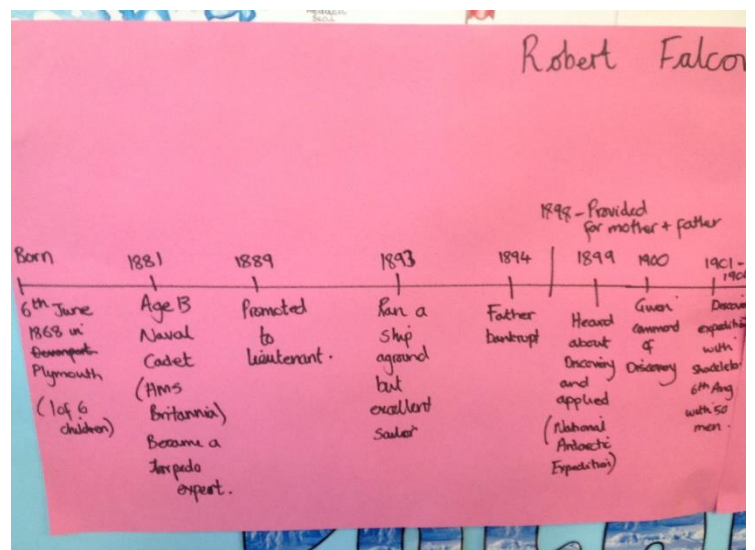 Robert Falcon
1898 - Provided
for mother + father
Born
6th June
1868 in
Devonport
Plymouth
(1 of 6
children)
1881
Age 13
Naval
Cadet
(HMS
Britannia)
Became a
torpedo
expert.
1889
Promoted
to
lieutenant.
1893
Ran a
ship
aground
but
excellent
sailor
1894
Father
bankrupt
1899
Heard
about
Discovery
and
applied
(National
Antarctic
Expedition)
1900
Given
command
of
Discovery
1901 -
Discove
expeditio
with
6th Aug
with 50
men.